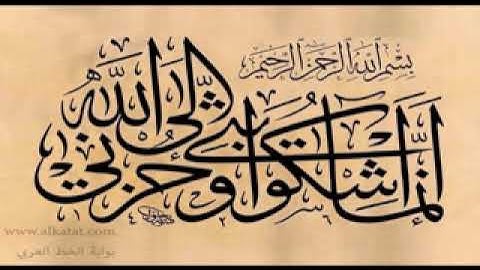 بسم الله الرحمن الرحيم
إنما أشكو بثي وحزني إلى الله
www.alkatat.com
بوابة الخط العربي